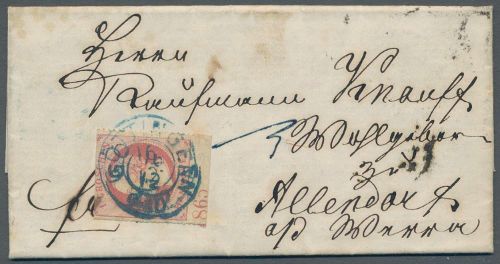 Herrn
Kaufmann Knauff
Wohlgeboren
zu
Allendorf
fr
a/ Werra
865